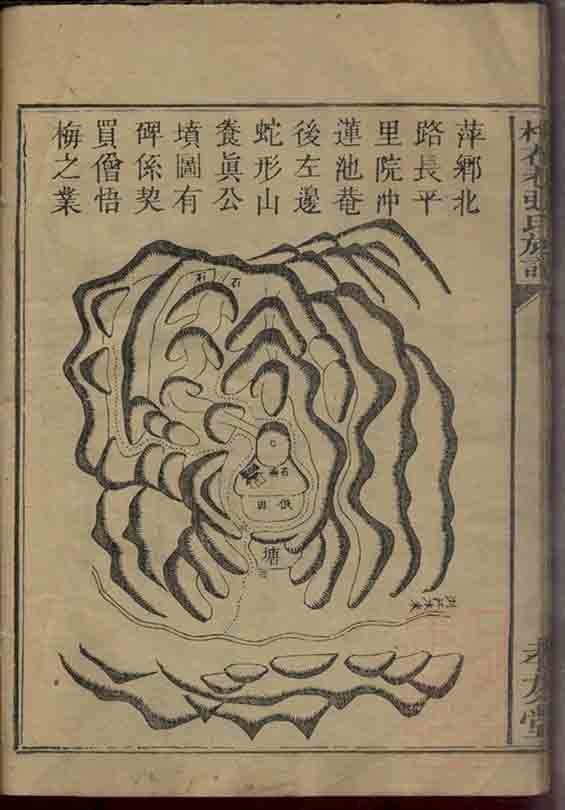 萍鄉北
路長平
里院冲
蓮池菴
後左邊
蛇形山
養眞公
墳圖有
碑係契
買僧悟
梅之業
石
石
塘
張氏族譜
孝友堂